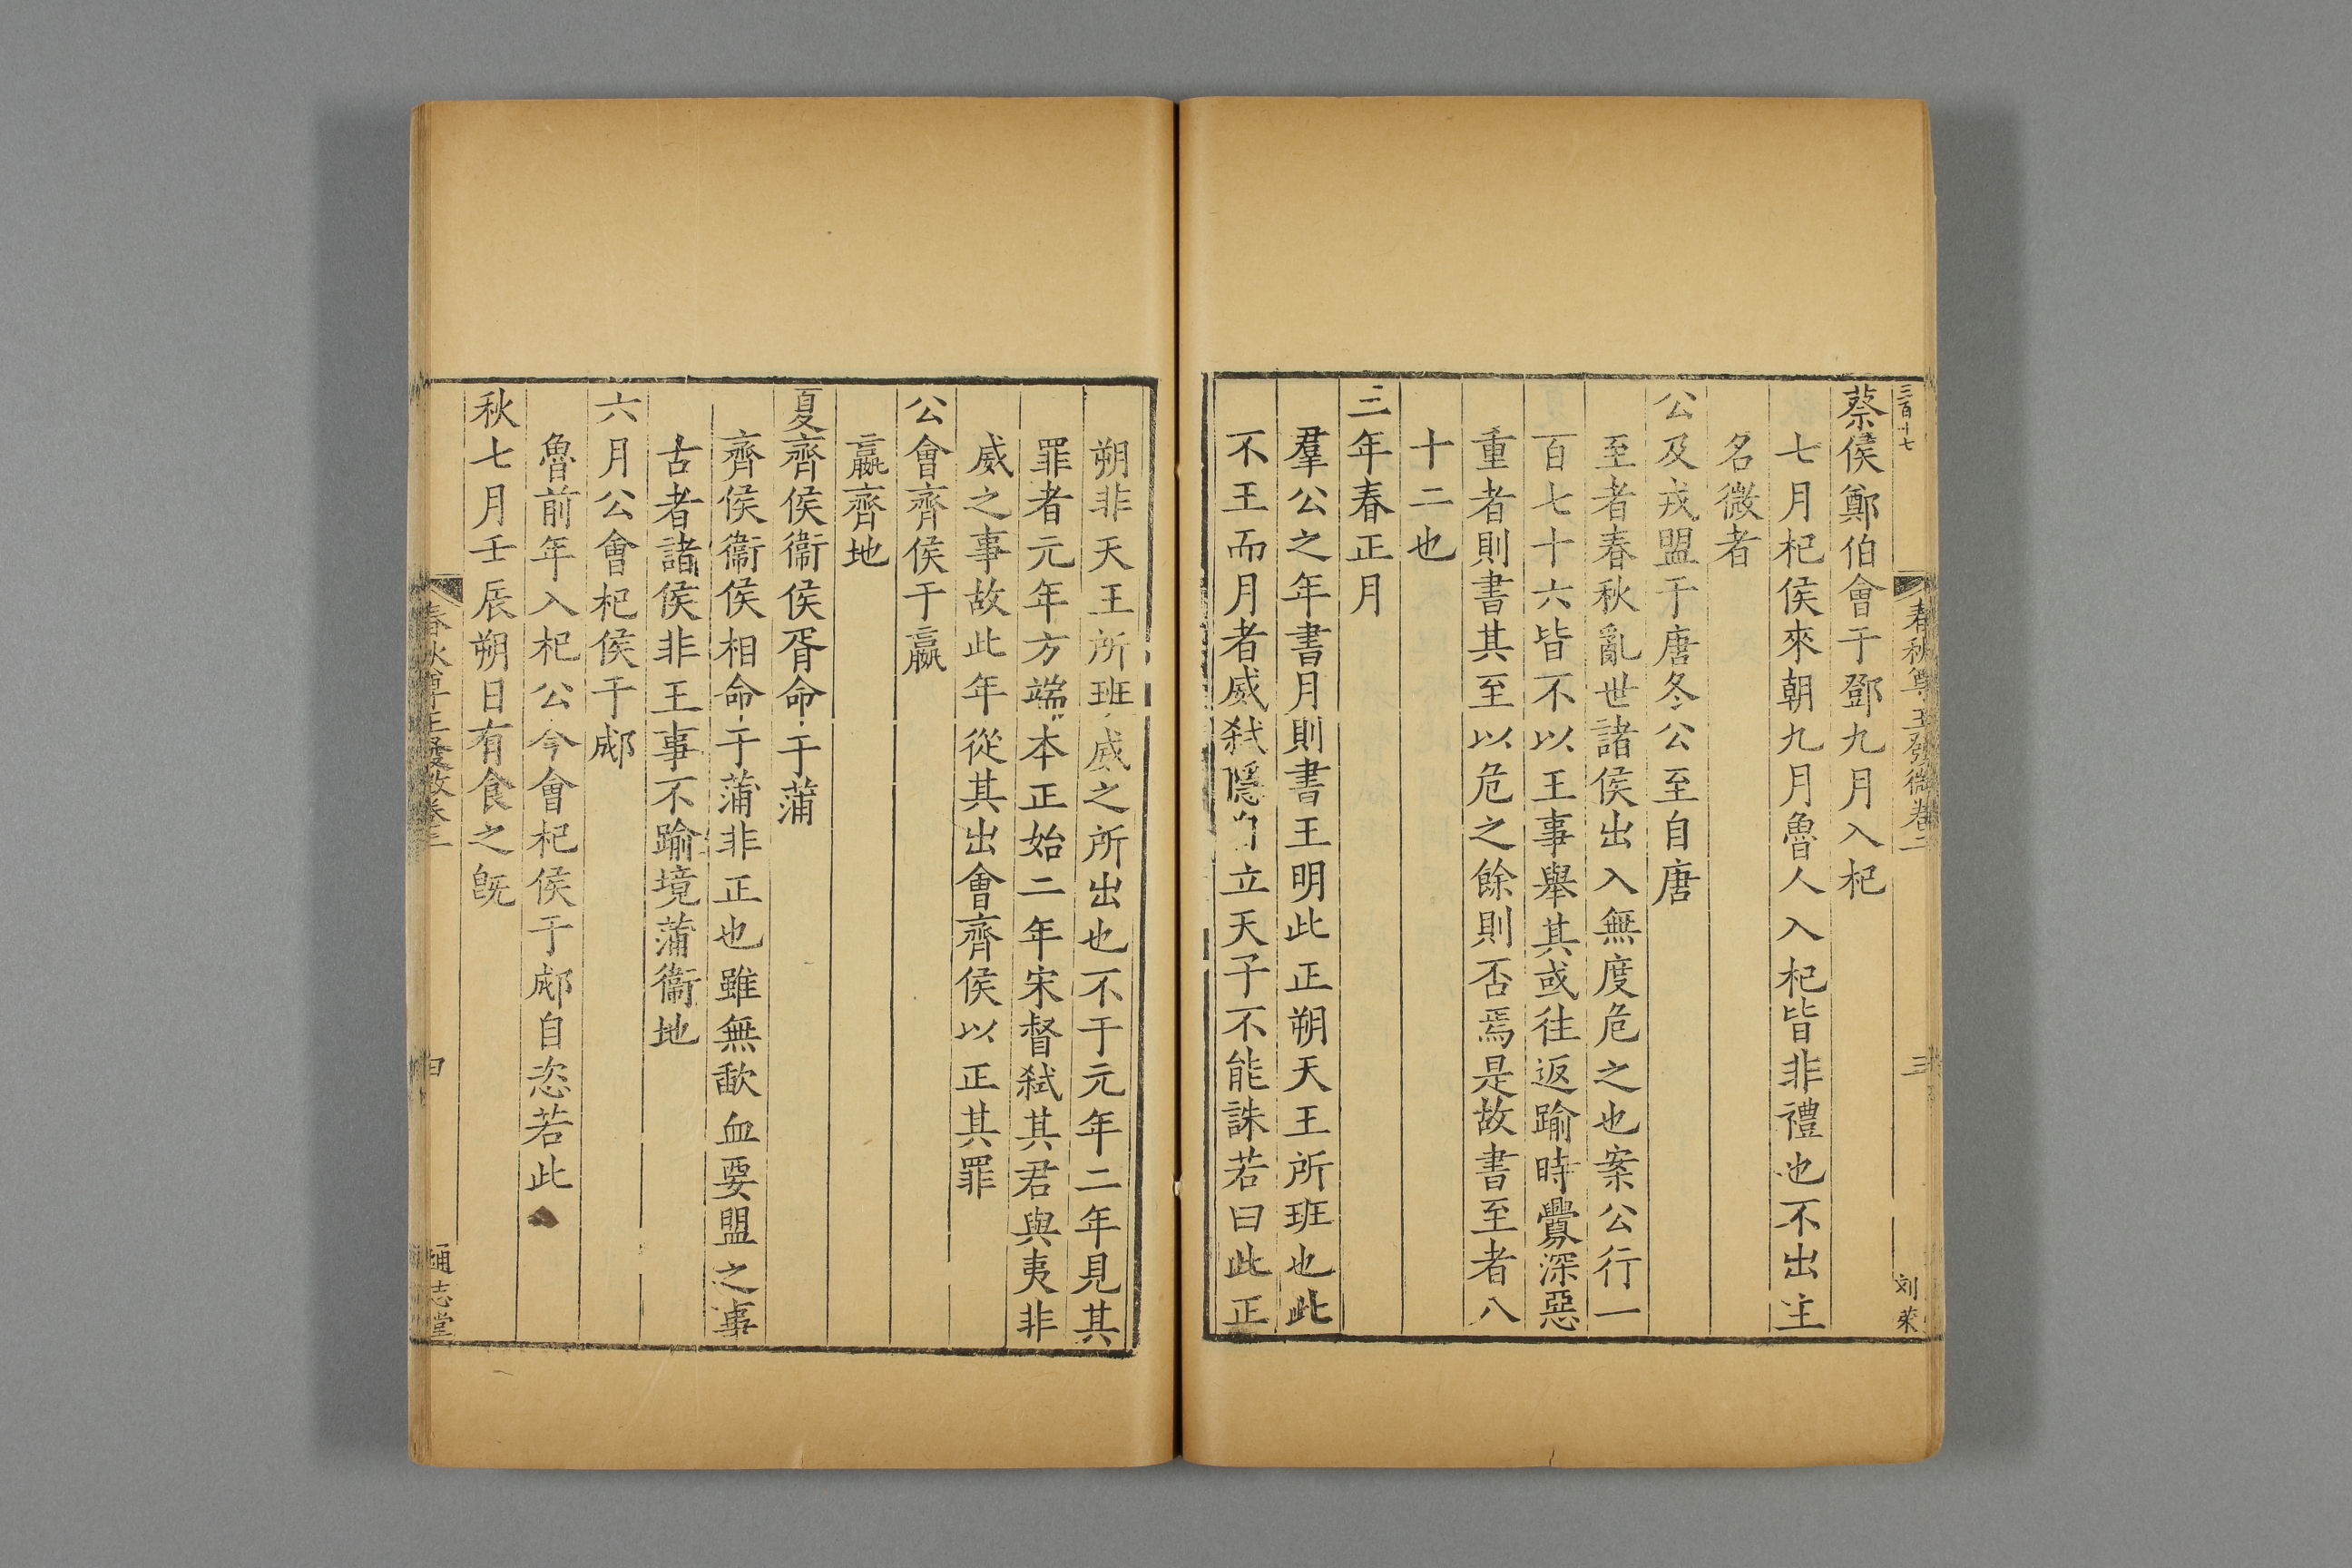 三百十七
春秋尊王發微卷二
三
刘荣
蔡侯鄭伯會于鄧九月入杞
七月杞侯來朝九月魯人入杞皆非禮也不出主
名微者
公及戎盟于唐冬公至自唐
至者春秋亂世諸侯出入無度危之也案公行一
百七十六皆不以王事舉其或往返踰時釁深惡
重者則書其至以危之餘則否焉是故書至者八
十二也
三年春正月
羣公之年書月則書王明此正朔天王所班也此
不王而月者威弒隱自立天子不能誅若曰此正
朔非天王所班威之所出也不于元年二年見其
罪者元年方端本正始二年宋督弒其君與夷非
威之事故此年從其出會齊侯以正其罪
公會齊侯于嬴
嬴齊地
夏齊侯衞侯胥命于蒲
齊侯衞侯相命于蒲非正也雖無歃血要盟之事
古者諸侯非王事不踰境蒲衞地
六月公會杞侯于郕
魯前年入杞公今會杞侯于郕自恣若此
秋七月壬辰朔日有食之旣
春秋尊王發微卷二
四
通志堂